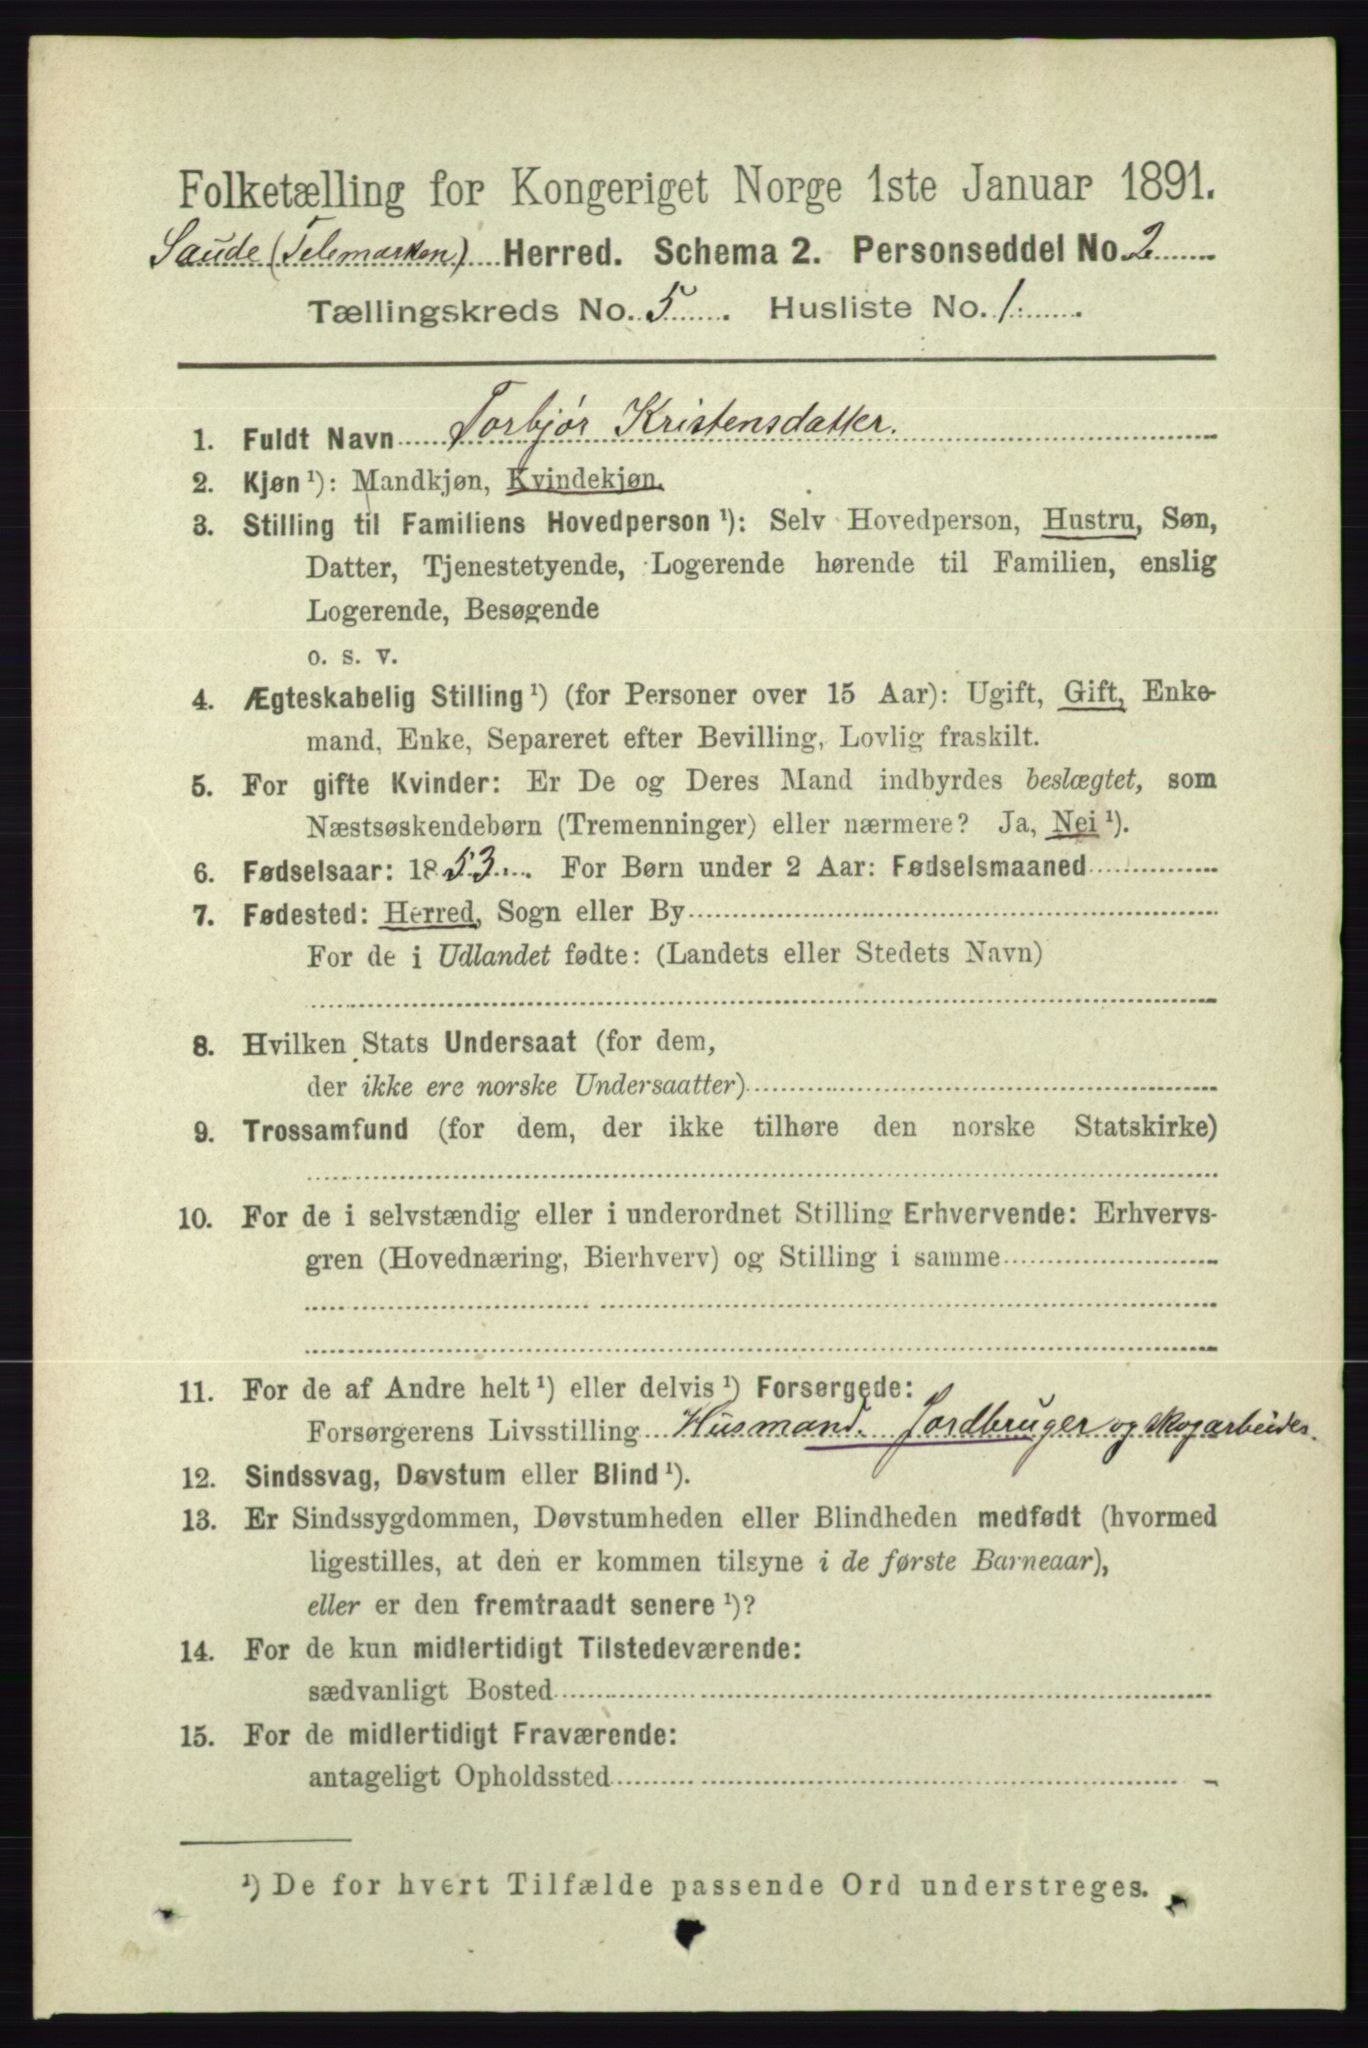 Folketælling for Kongeriget Norge 1ste Januar 1891.
Saude (Telemarken) Herred. Schema 2. Personseddel No. 2
Tællingskreds No. 5. Husliste No. 1.
1. Fuldt Navn Torbjør Kristensdatter.
2. Kjøn ¹): Mandkjøn, Kvindekjøn.
3. Stilling til Familiens Hovedperson ¹): Selv Hovedperson, Hustru, Søn,
Datter, Tjenestetyende, Logerende hørende til Familien, enslig
Logerende, Besøgende
o. s. v.
4. Ægteskabelig Stilling ¹) (for Personer over 15 Aar): Ugift, Gift, Enke-
mand, Enke, Separeret efter Bevilling, Lovlig fraskilt.
5. For gifte Kvinder: Er De og Deres Mand indbyrdes beslægtet, som
Næstsøskendebørn (Tremenninger) eller nærmere? Ja, Nei ¹).
6. Fødselsaar: 1853. For Børn under 2 Aar: Fødselsmaaned
7. Fødested: Herred, Sogn eller By
For de i Udlandet fødte: (Landets eller Stedets Navn)
8. Hvilken Stats Undersaat (for dem,
der ikke ere norske Undersaatter)
9. Trossamfund (for dem, der ikke tilhøre den norske Statskirke)
10. For de i selvstændig eller i underordnet Stilling Erhvervende: Erhvervs-
gren (Hovednæring, Bierhverv) og Stilling i samme
11. For de af Andre helt ¹) eller delvis ¹) Forsørgede:
Forsørgerens Livsstilling Husmand. Jordbruger og skogarbeider.
12. Sindssvag, Døvstum eller Blind ¹).
13. Er Sindssygdommen, Døvstumheden eller Blindheden medfødt (hvormed
ligestilles, at den er kommen tilsyne i de første Barneaar),
eller er den fremtraadt senere ¹)?
14. For de kun midlertidigt Tilstedeværende:
sædvanligt Bosted
15. For de midlertidigt Fraværende:
antageligt Opholdssted
¹) De for hvert Tilfælde passende Ord understreges.